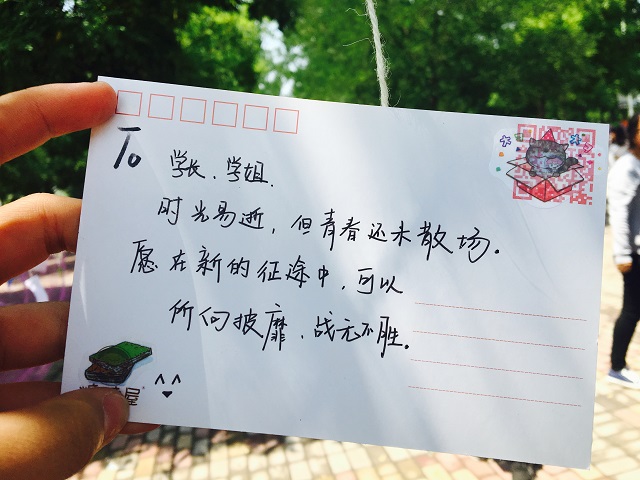 To 学长、学姐.
时光易逝，但青春还未散场.
愿在新的征途中，可以
所向披靡、战无不胜。
屋